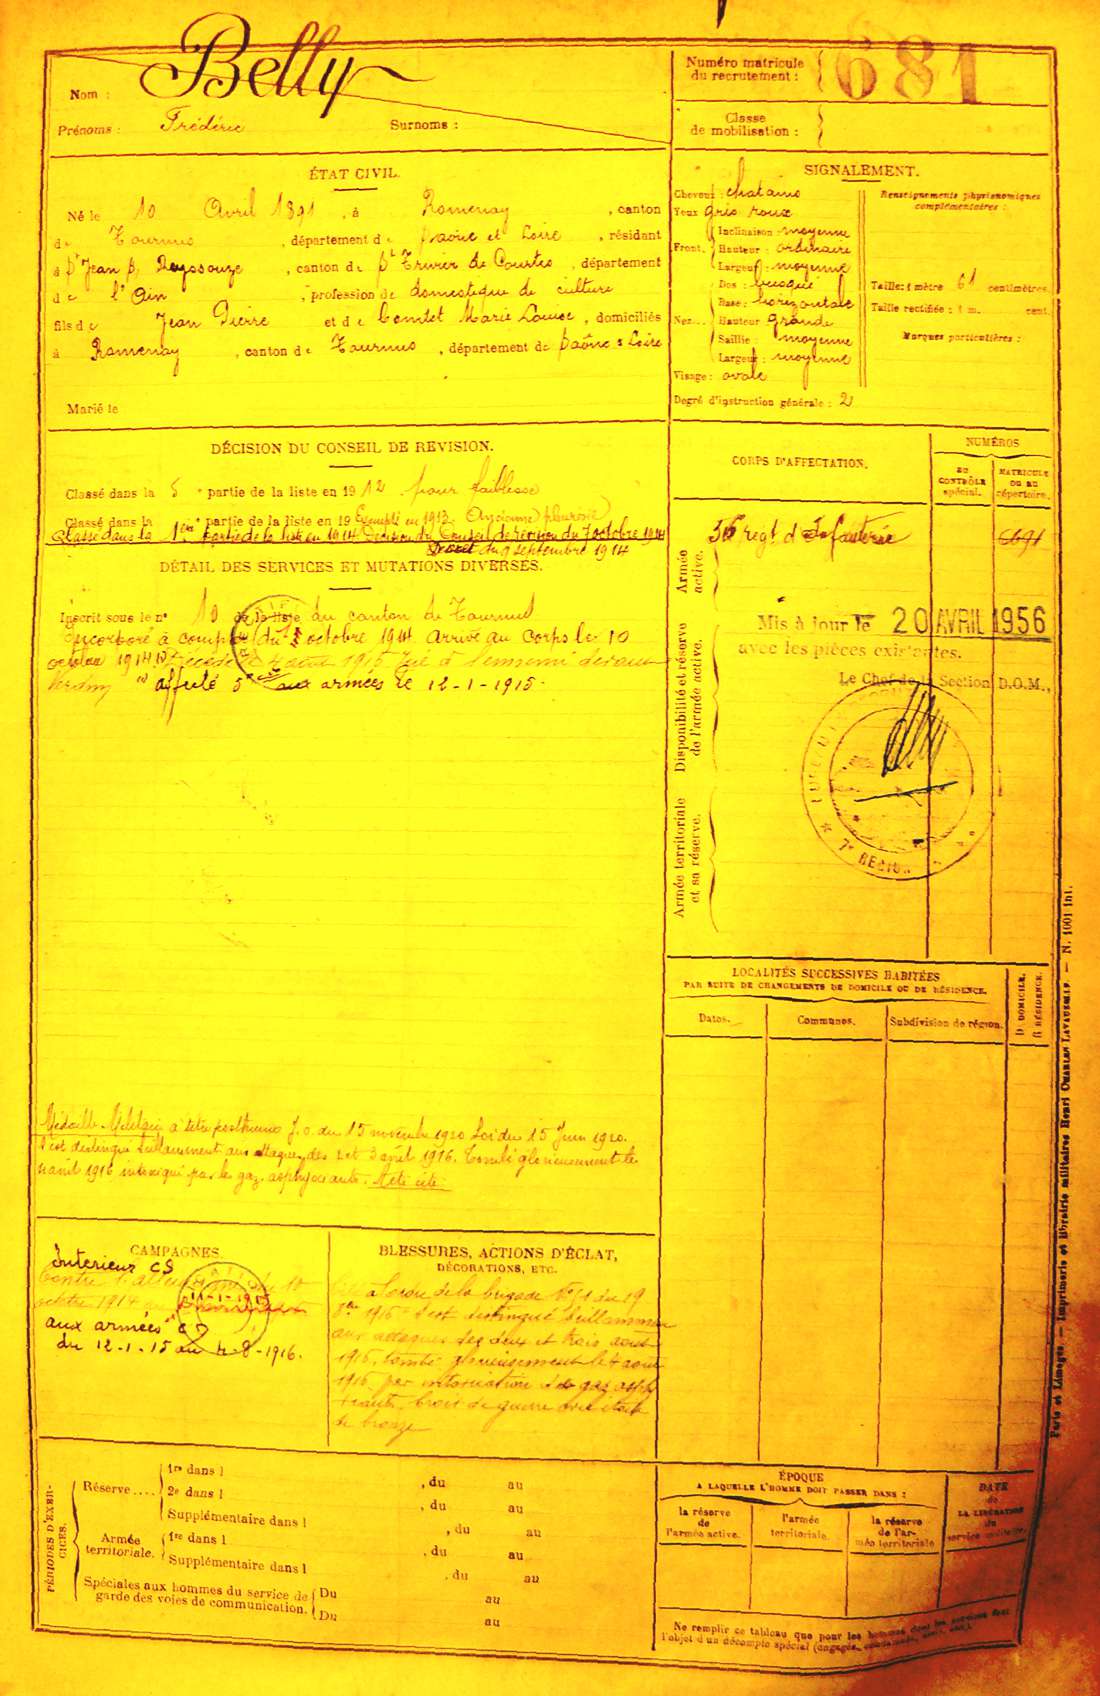 Nom : Belly
Prénoms : Frédéric Surnoms :
Numéro matricule du recrutement : 681
Classe de mobilisation :
ÉTAT CIVIL.
Né le 10 Avril 1891, à Romenay, canton
de Tournus, département de Saône et Loire, résidant
à St Jean s/ Reyssouze, canton de St Trivier de Courtes, département
de l'Ain, profession de domestique de culture
fils de Jean Pierre et de Comtet Marie Louise, domiciliés
à Romenay, canton de Tournus, département de Saône & Loire
Marié le
SIGNALEMENT.
Cheveux : chatains
Yeux gris roux
Front. Inclinaison : moyenne
Hauteur : ordinaire
Largeur : moyenne
Nez... Dos : busqué
Base : horizontale
Hauteur grande
Saillie : moyenne
Largeur : moyenne
Visage : ovale
Degré d'instruction générale : 2
Renseignements physionomiques
complémentaires :
Taille : 1 mètre 61 centimètres.
Taille rectifiée : 1 m. cent.
Marques particulières :
DÉCISION DU CONSEIL DE REVISION.
Classé dans la 5e partie de la liste en 1912 pour faiblesse
Classé dans la partie de la liste en 19 Exempté en 1913. Ancienne pleurésie
Classé dans la 1ère partie de la liste en 1914 Décision du Conseil de révision du 7 octobre 1914
Décret du 9 septembre 1914
DÉTAIL DES SERVICES ET MUTATIONS DIVERSES.
Inscrit sous le no 10 de la liste du canton de Tournus
Incorporé à compter du octobre 1914. Arrivé au corps le 10
octobre 1914. Décédé le 4 août 1916 Tué à l'ennemi devant
Verdun affecté aux armées le 12-1-1915.
Médaille Militaire à titre posthume J.O. du 15 novembre 1920 Loi du 15 Juin 1920.
S'est distingué brillamment aux attaques des 2 et 3 avril 1916. Tombé glorieusement le
4 avril 1916 intoxiqué par les gaz asphyxiants. A été cité.
CORPS D'AFFECTATION.
NUMÉROS
AU CONTRÔLE spécial.
MATRICULE OU AU répertoire.
Armée active.
56 regt d'Infanterie
Disponibilité et réserve de l'armée active.
Mis à jour le 20 AVRIL 1956
avec les pièces existantes.
Le Chef de la Section D.O.M.,
7e REGION
Armée territoriale et sa réserve.
LOCALITÉS SUCCESSIVES HABITÉES
PAR SUITE DE CHANGEMENTS DE DOMICILE OU DE RÉSIDENCE.
Dates. Communes. Subdivision de région. D. DOMICILE. R. RÉSIDENCE.
CAMPAGNES.
Intérieur CS
Contre l'Allemagne du 10
octobre 1914 au
11-1-1915
aux armées
du 12-1-15 au 4-8-1916.
BLESSURES, ACTIONS D'ÉCLAT,
DÉCORATIONS, ETC.
Cité à l'ordre de la brigade No 51 du 19
1916 S'est distingué brillamment
aux attaques des deux et trois août
1916, tombé glorieusement le 4 août
1916 par intoxication de gaz asphy
xiants. Croix de guerre avec étoile
de bronze
PÉRIODES D'EXERCICES.
Réserve.... 1re dans l , du au
2e dans l , du au
Supplémentaire dans l , du au
Armée territoriale. 1re dans l , du au
Supplémentaire dans l , du au
Spéciales aux hommes du service de garde des voies de communication. Du au
Du au
ÉPOQUE
A LAQUELLE L'HOMME DOIT PASSER DANS :
la réserve de l'armée active.
l'armée territoriale.
la réserve de l'armée territoriale
DATE de LA LIBÉRATION du service militaire.
Ne remplir ce tableau que pour les hommes dont les services font
l'objet d'un décompte spécial (engagés, etc.).
Paris et Limoges. — Imprimerie et librairie militaires Henri CHARLES-LAVAUZELLE. — N. 1001 Int.